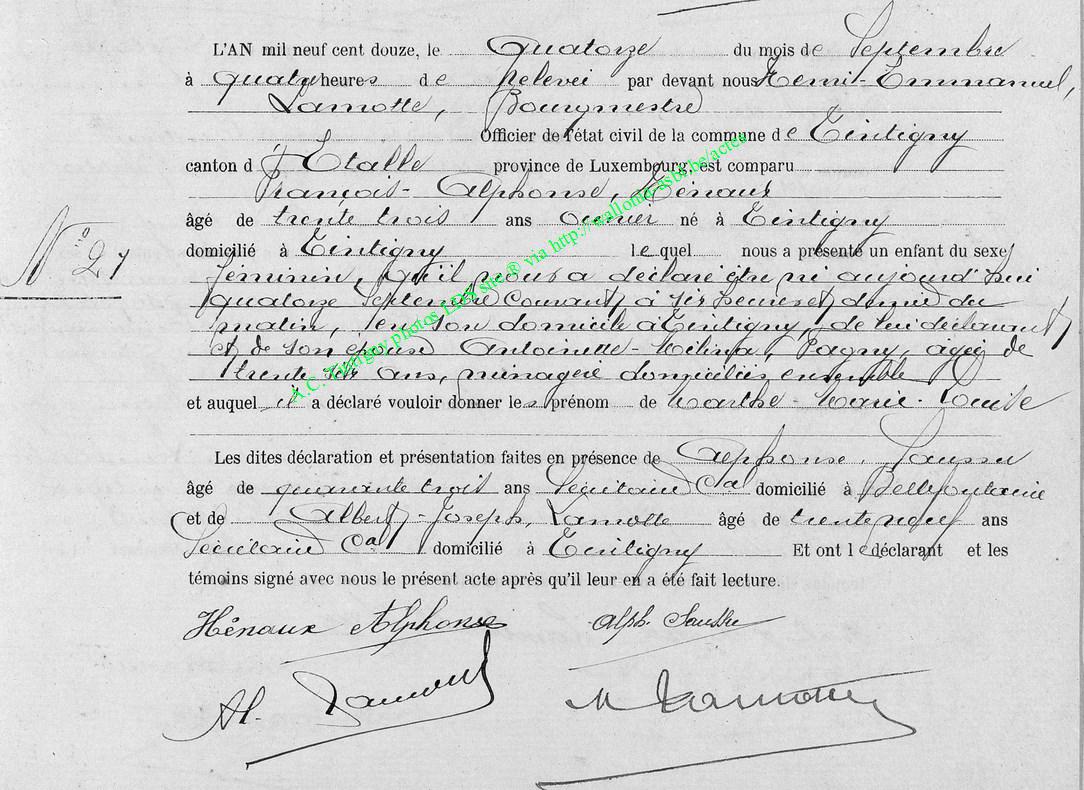 L'AN mil neuf cent douze, le Quatorze du mois de Septembre
à quatre heures de relevée par devant nous Emmanuel,
Lamotte, Bourgmestre
Officier de l'état civil de la commune de Tintigny
canton d'Etalle province de Luxembourg, est comparu
François-Alphonse, Hénaux
âgé de trente trois ans ouvrier né à Tintigny
N° 27
domicilié à Tintigny lequel nous a présenté un enfant du sexe
féminin, qu'il nous a déclaré être né aujourd'hui
quatorze Septembre courant, à six heures et demie du
matin, en son domicile à Tintigny, de lui déclarant
et de son épouse Antoinette-Mélina, Pagny, âgée de
trente six ans, ménagère domiciliés ensemble
et auquel il a déclaré vouloir donner les prénom de Marthe-Marie-Louise
Les dites déclaration et présentation faites en présence de Alphonse
âgé de quarante trois ans Secrétaire Cal domicilié à Bellefontaine
et de Albert-Joseph, Lamotte âgé de trente neuf ans
Secrétaire Cal domicilié à Tintigny Et ont le déclarant et les
témoins signé avec nous le présent acte après qu'il leur en a été fait lecture.
Hénaux Alphonse Alph.
Al. Lamotte Lamotte
A.C. Tintigny photos LDS site® via http://wallonia-asbl.be/actes